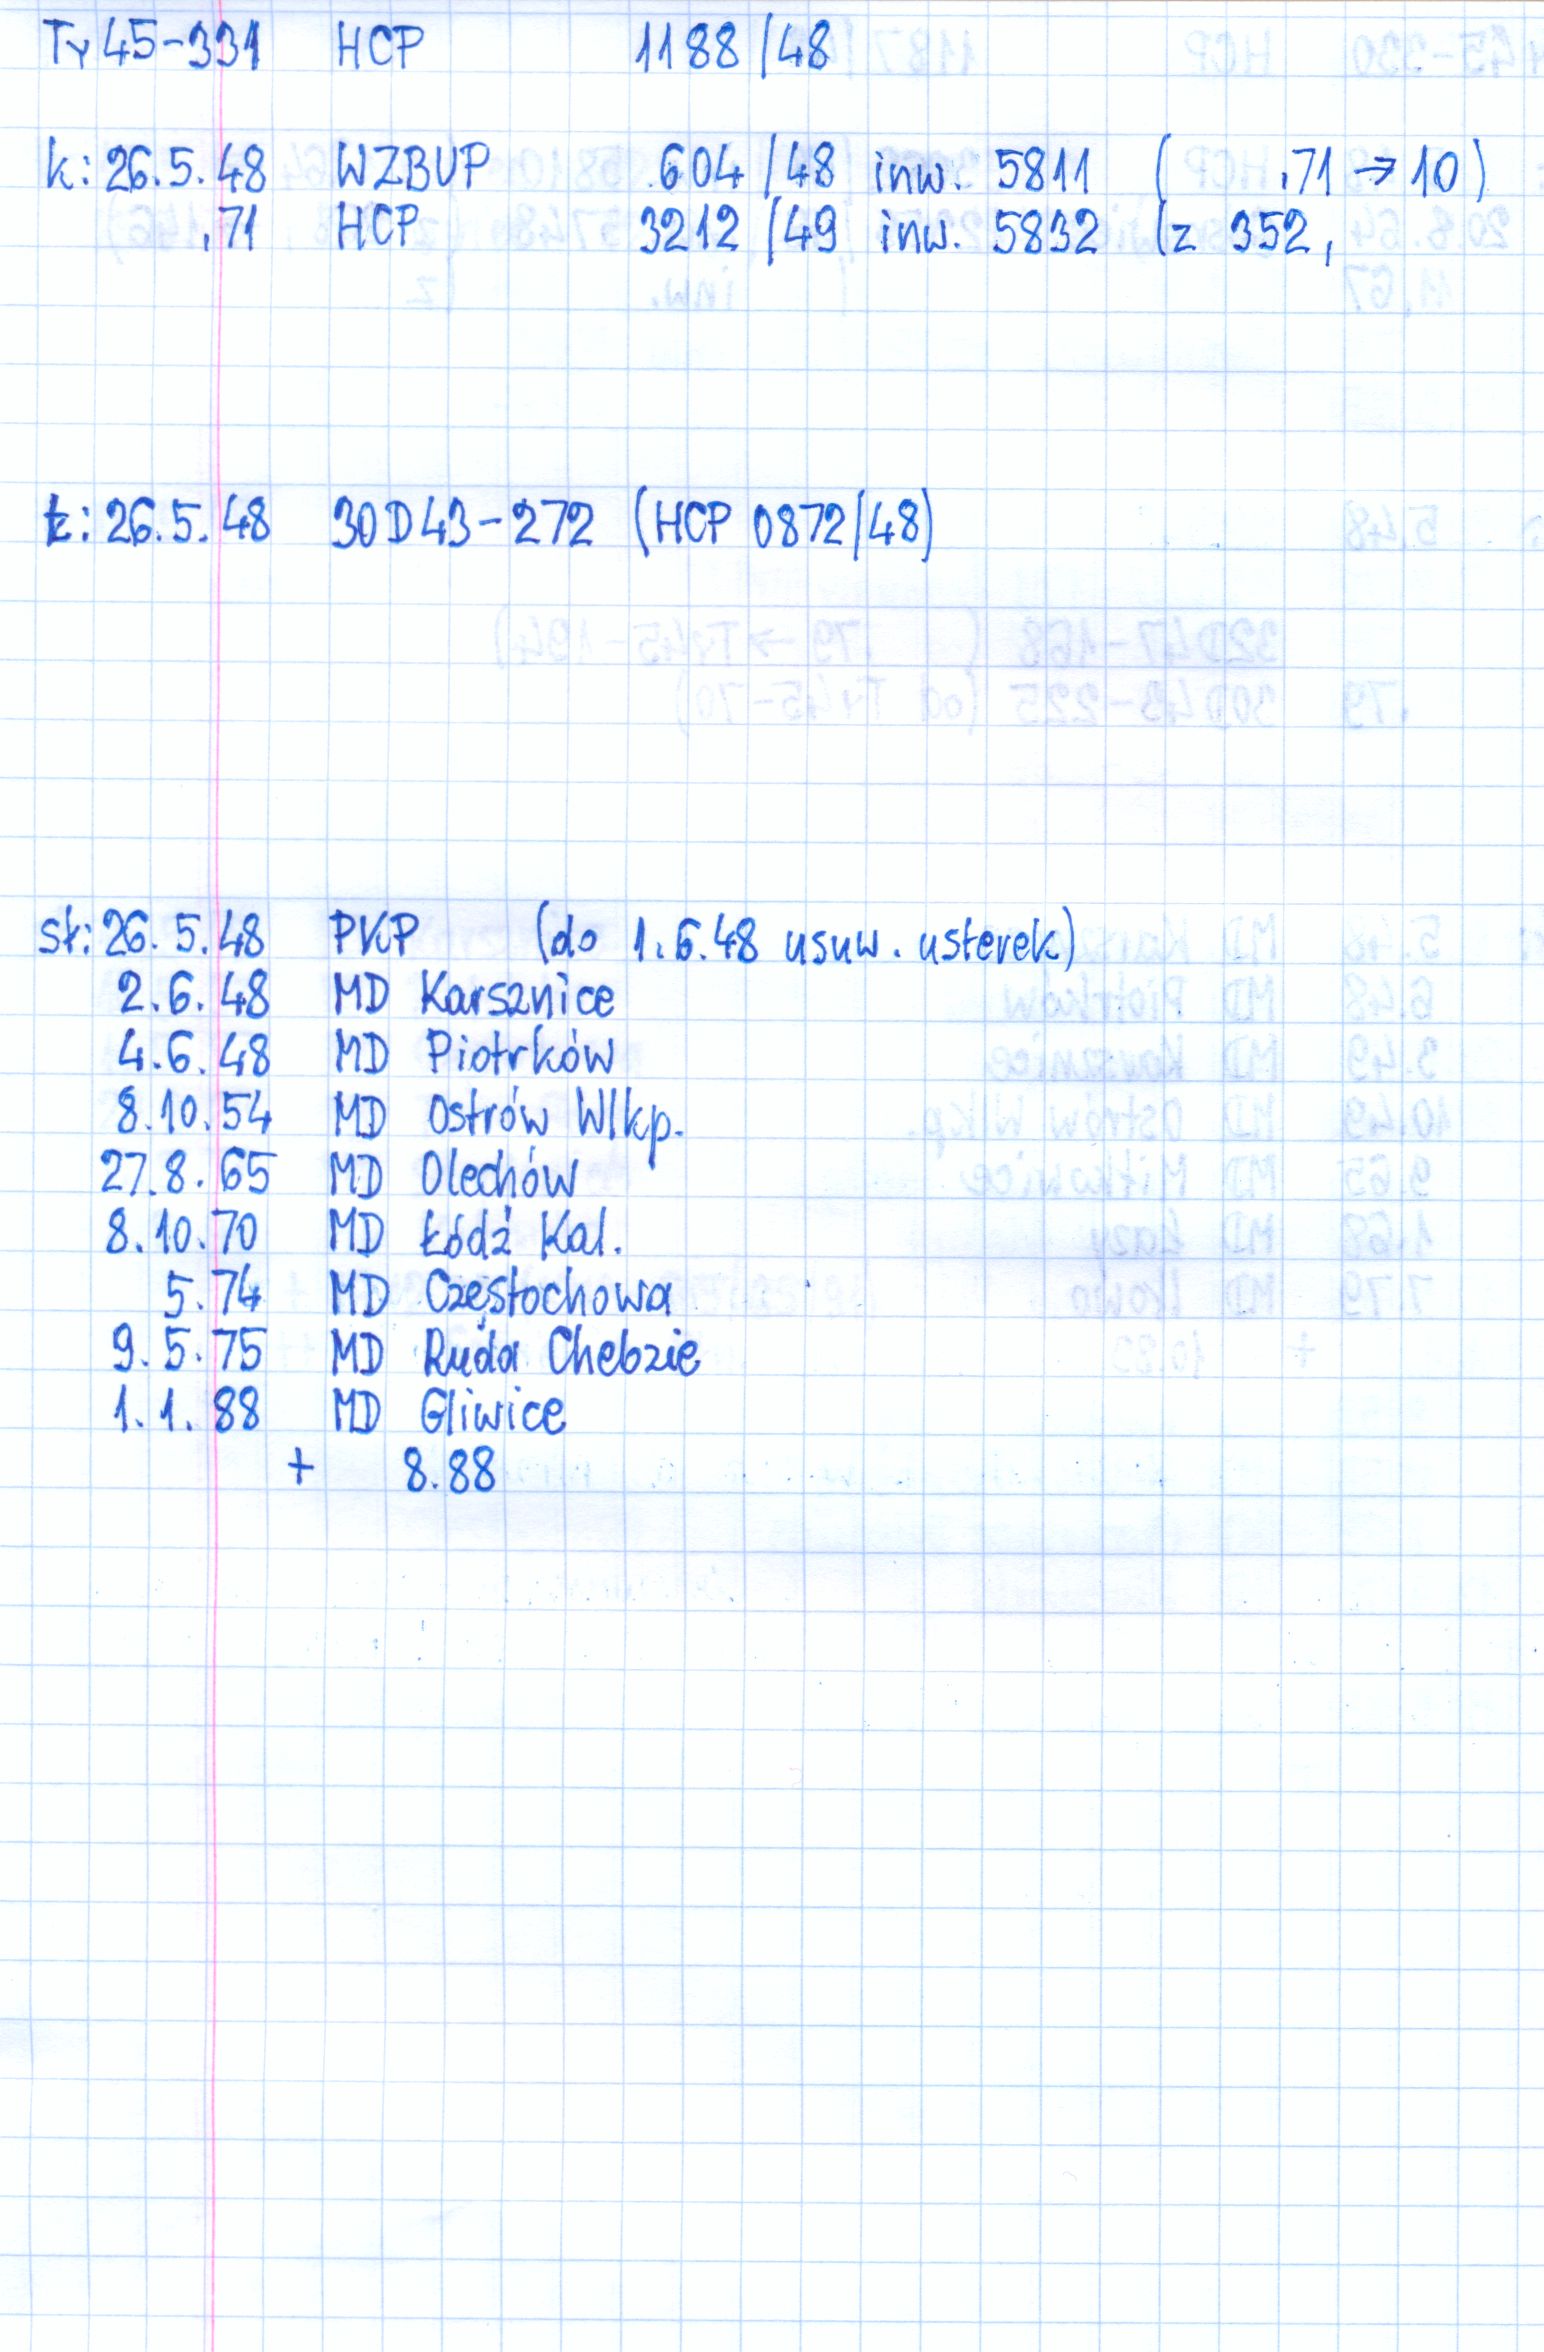 Ty45-331 HCP 1188/48
k: 26.5.48 WZBUP 604/48 inw. 5811 ( .71 → 10)
.71 HCP 3212/49 inw. 5832 (z 352,
t: 26.5.48 30D43-272 (HCP 0872/48)
sł: 26.5.48 PKP (do 1.6.48 usuw. usterek)
2.6.48 MD Karsznice
4.6.48 MD Piotrków
8.10.54 MD Ostrów Wlkp.
27.8.65 MD Olechów
8.10.70 MD Łódź Kal.
5.74 MD Częstochowa
9.5.75 MD Ruda Chebzie
1.1.88 MD Gliwice
+ 8.88